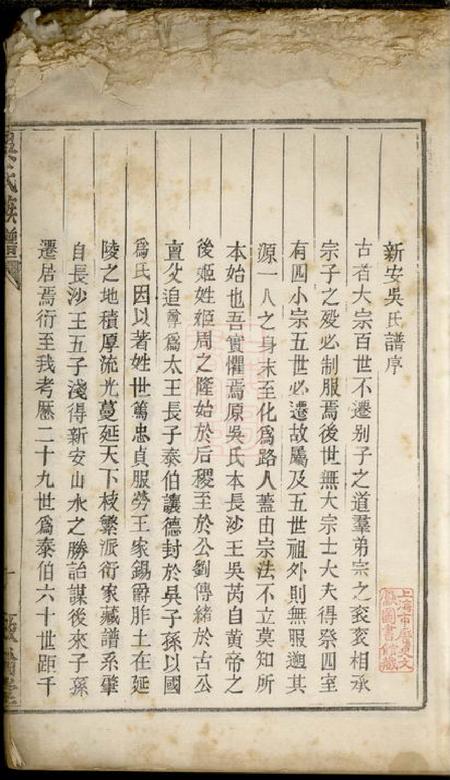 新安吳氏譜序
古者大宗百世不遷别子之道羣弟宗之衮衮相承
宗子之歿必制服焉後世無大宗士大夫得祭四室
有四小宗五世必遷故屬及五世祖外則無服遡其
源一人之身末至化爲路人葢由宗法不立莫知所
本始也吾實懼焉原吳氏本長沙王吳芮自黄帝之
後姬姓姬周之隆始於后稷至於公劉傳緒於古公
亶父追尊爲太王長子泰伯讓德封於吳子孫以國
爲氏因以著姓世篤忠貞服勞王家錫爵胙土在延
陵之地積厚流光蔓延天下枝繁派衍家藏譜系肇
自長沙王五子淺得新安山水之勝詒謀後來子孫
遷居焉衍至我考歷二十九世爲泰伯六十世距千
吳氏族譜
上海市歷史文
獻圖書館藏